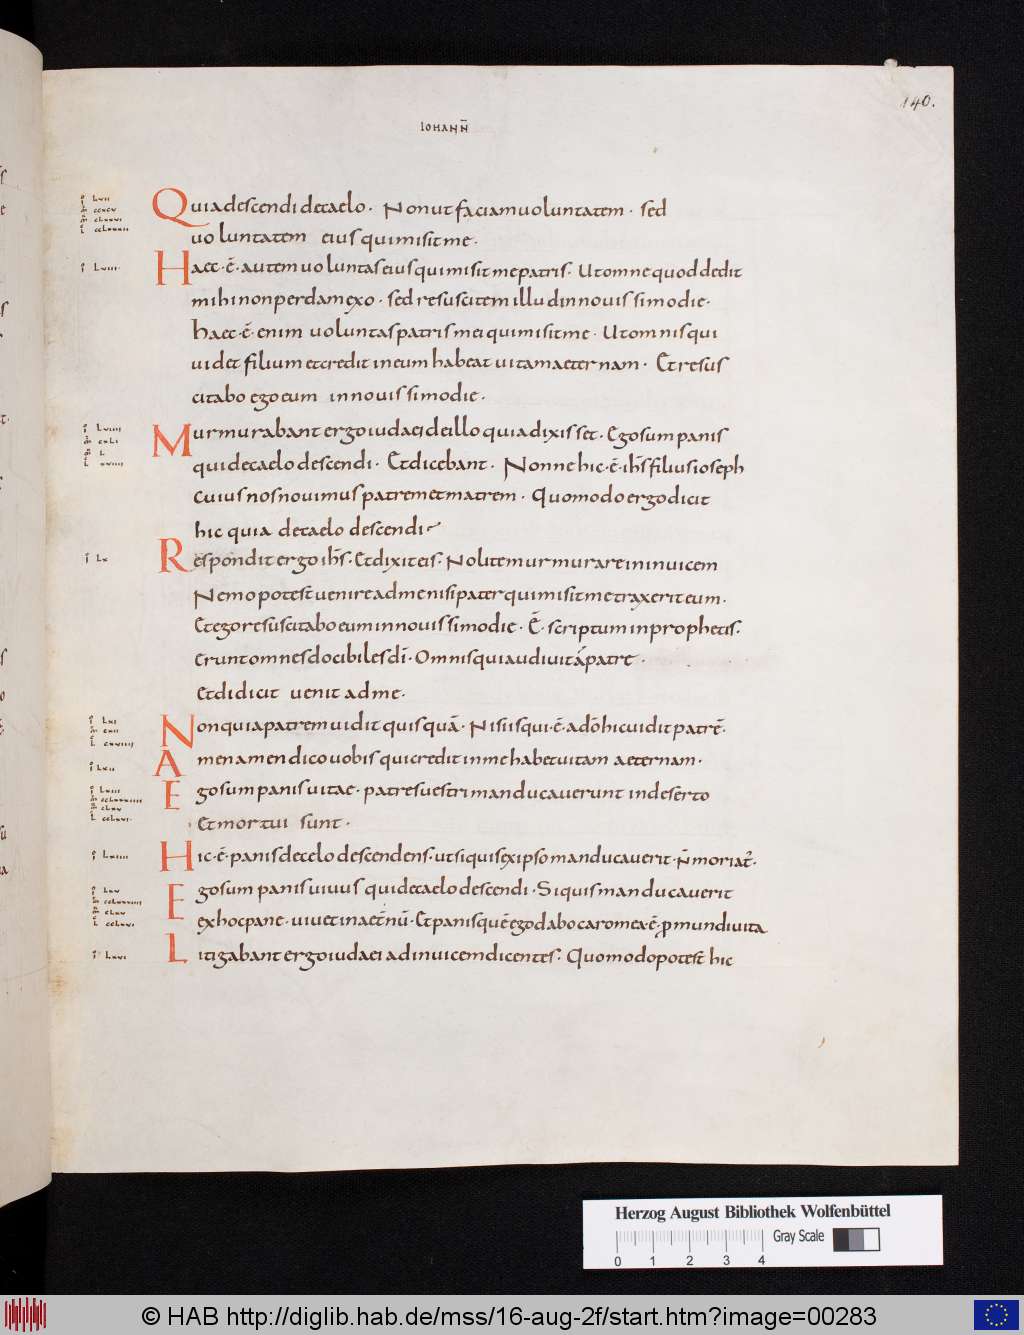 140.
IOHANN̄
Quia descendi de caelo · Non ut faciam uoluntatem · sed
uoluntatem eius qui misit me ·
Haec · ē · autem uoluntas eius qui misit me patris · Ut omne quod dedit
mihi non perdam exo · sed resuscitem illud in nouissimo die ·
haec · ē · enim uoluntas patris mei qui misit me · Ut omnis qui
uidet filium et credit in eum habeat uitam aeternam · Et resus
citabo ego eum in nouissimo die ·
Murmurabant ergo iudaei de illo quia dixisset · Ego sum panis
qui de caelo descendi · Et dicebant · Nonne hic · ē · ih̄s filius ioseph
cuius nos nouimus patrem et matrem · Quomodo ergo dicit
hic quia de caelo descendi
Respondit ergo ih̄s · Et dixit eis · Nolite murmurare in inuicem
Nemo potest uenire ad me nisi pater qui misit me traxerit eum ·
Et ego resuscitabo eum in nouissimo die · Ē · scriptum in prophetis ·
Erunt omnes docibiles dī · Omnis qui audiuit a patre ·
Et didicit uenit ad me ·
Non quia patrem uidit quisquā · Nisi is qui · ē · a dō hic uidit patrē ·
Amen amen dico uobis qui credit in me habet uitam aeternam ·
Ego sum panis uitae · patres uestri manducauerunt in deserto
Et mortui sunt ·
Hic · ē · panis de celo descendens · ut si quis ex ipso manducauerit · n̄ moriat᷑ ·
Ego sum panis uiuus qui de caelo descendi · Si quis manducauerit
ex hoc pane · uiuet in aet̄nū · Et panis quē ego dabo caro mea · ē · ꝓ mundi uita
Litigabant ergo iudaei ad inuicem dicentes · Quomodo potest hic
Herzog August Bibliothek Wolfenbüttel
Gray Scale
0 1 2 3 4
© HAB http://diglib.hab.de/mss/16-aug-2f/start.htm?image=00283